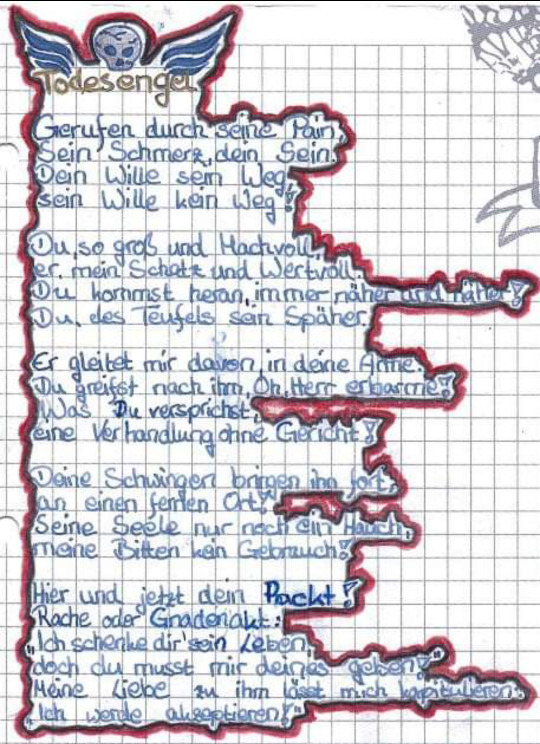 Todesengel
Gerufen durch seine Pain,
Sein Schmerz, dein Sein.
Dein Wille sein Weg,
sein Wille kein Weg!
Du, so groß und Machvoll,
er, mein Schatz und Wertvoll.
Du kommst heran, immer näher und näher!
Du, des Teufels sein Späher.
Er gleitet mir davon, in deine Arme.
Du greifst nach ihm, Oh, Herr erbarme!
Was Du versprichst,
eine Verhandlung ohne Gericht!
Deine Schwingen bringen ihn fort,
an einen fernen Ort!
Seine Seele nur noch ein Hauch,
meine Bitten kein Gebrauch!
Hier und jetzt dein Packt!
Rache oder Gnadenakt:
„Ich schenke dir sein Leben,
doch du musst mir deines geben!"
Meine Liebe zu ihm lässt mich kapitulieren.
„Ich werde akzeptieren!"